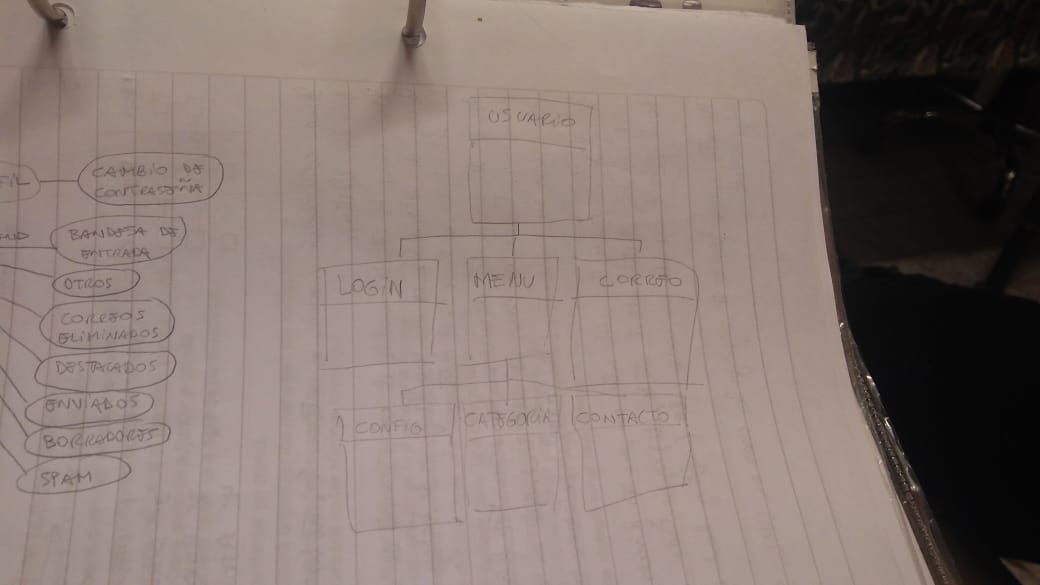 FIL
CAMBIO DE
CONTRASEÑA
BANDEJA DE
ENTRADA
OTROS
CORREOS
ELIMINADOS
DESTACADOS
ENVIADOS
BORRADORES
SPAM
USUARIO
LOGIN
MENU
CORREO
CONFIG
CATEGORIA
CONTACTO